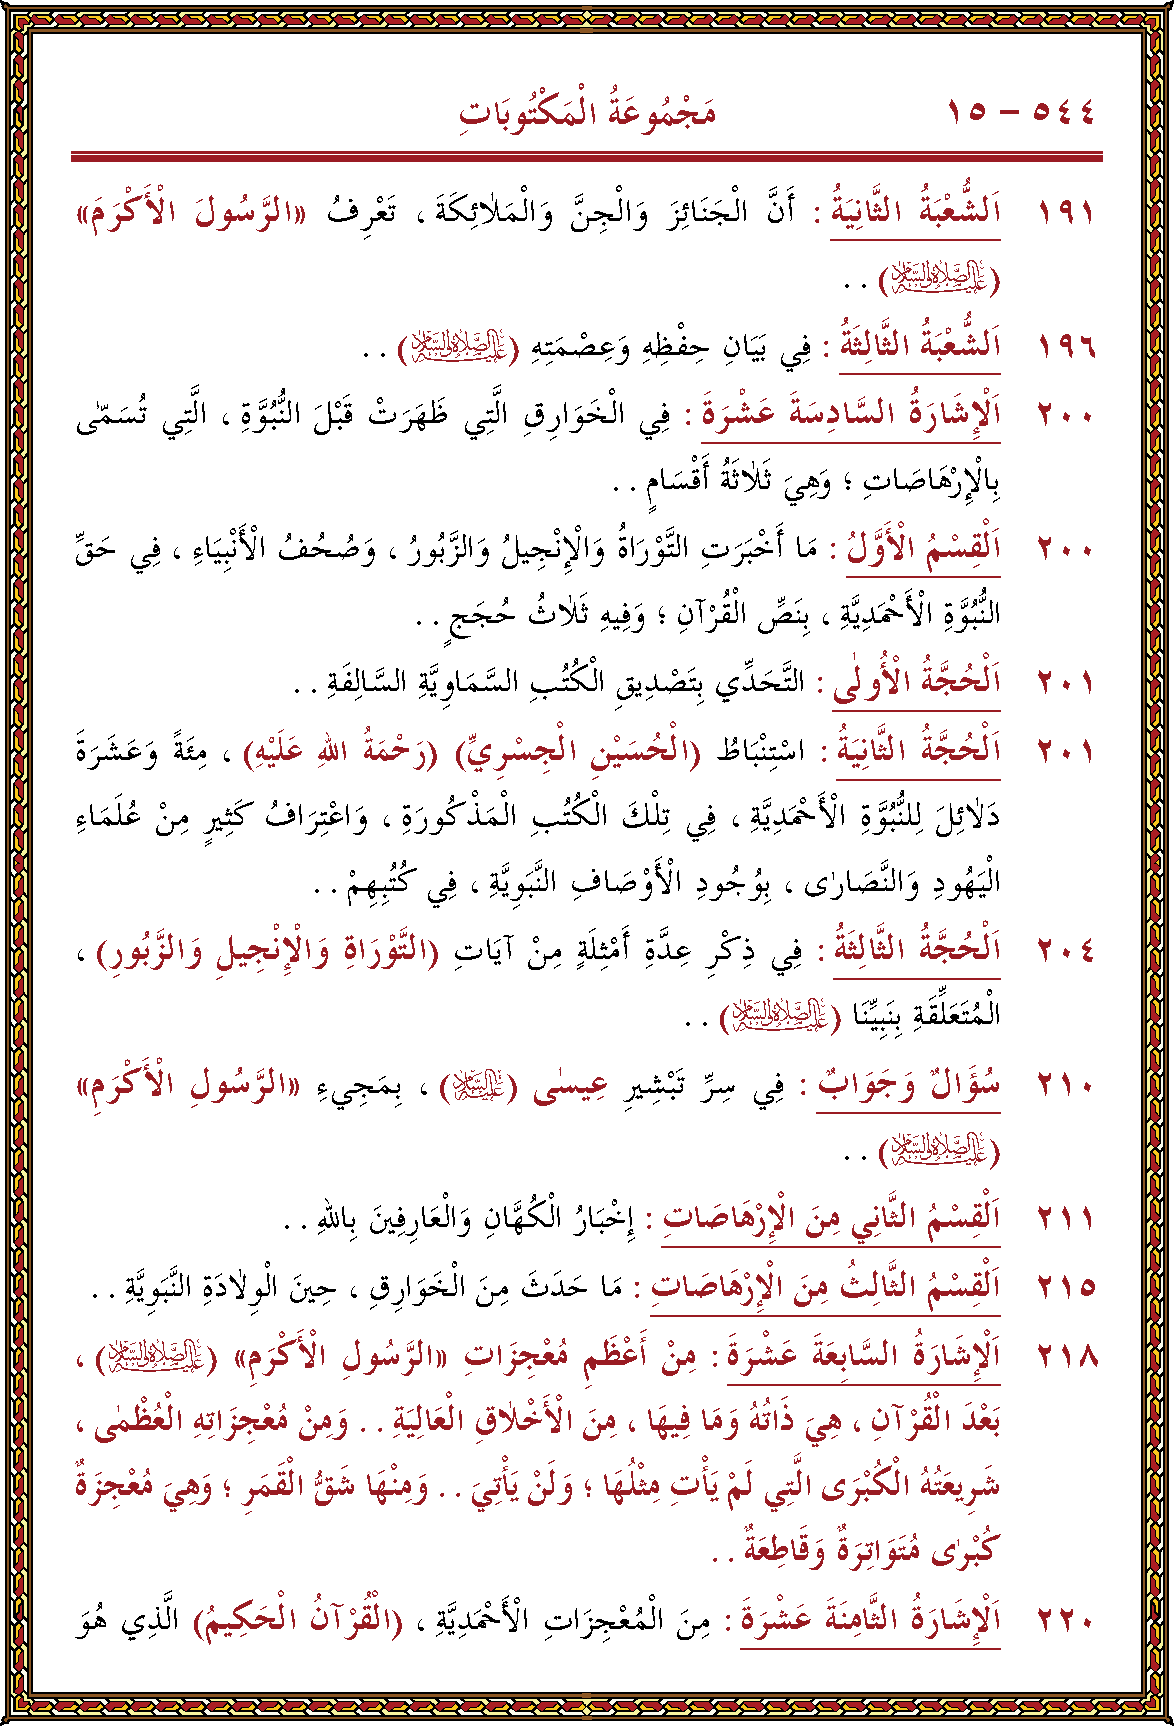 ٥٤٤ – ١٥ مَجْمُوعَةُ الْمَكْتُوبَاتِ
١٩١ اَلشُّعْبَةُ الثَّانِيَةُ : أَنَّ الْجَنَائِزَ وَالْجِنَّ وَالْمَلٰائِكَةَ ، تَعْرِفُ «الرَّسُولَ الْأَكْرَمَ»
(عَلَيْهِ الصَّلَاةُ وَالسَّلَامُ) . .
١٩٦ اَلشُّعْبَةُ الثَّالِثَةُ : فِي بَيَانِ حِفْظِهِ وَعِصْمَتِهِ (عَلَيْهِ الصَّلَاةُ وَالسَّلَامُ) . .
٢٠٠ اَلْإِشَارَةُ السَّادِسَةَ عَشْرَةَ : فِي الْخَوَارِقِ الَّتِي ظَهَرَتْ قَبْلَ النُّبُوَّةِ ، الَّتِي تُسَمّٰى
بِالْإِرْهَاصَاتِ ؛ وَهِيَ ثَلٰاثَةُ أَقْسَامٍ . .
٢٠٠ اَلْقِسْمُ الْأَوَّلُ : مَا أَخْبَرَتِ التَّوْرَاةُ وَالْإِنْجِيلُ وَالزَّبُورُ ، وَصُحُفُ الْأَنْبِيَاءِ ، فِي حَقِّ
النُّبُوَّةِ الْأَحْمَدِيَّةِ ، بِنَصِّ الْقُرْآنِ ؛ وَفِيهِ ثَلٰاثُ حُجَجٍ . .
٢٠١ اَلْحُجَّةُ الْأُولٰى : التَّحَدِّي بِتَصْدِيقِ الْكُتُبِ السَّمَاوِيَّةِ السَّالِفَةِ . .
٢٠١ اَلْحُجَّةُ الثَّانِيَةُ : اسْتِنْبَاطُ (الْحُسَيْنِ الْجِسْرِيِّ) (رَحْمَةُ اللهِ عَلَيْهِ) ، مِئَةً وَعَشَرَةَ
دَلٰائِلَ لِلنُّبُوَّةِ الْأَحْمَدِيَّةِ ، فِي تِلْكَ الْكُتُبِ الْمَذْكُورَةِ ، وَاعْتِرَافُ كَثِيرٍ مِنْ عُلَمَاءِ
الْيَهُودِ وَالنَّصَارٰى ، بِوُجُودِ الْأَوْصَافِ النَّبَوِيَّةِ ، فِي كُتُبِهِمْ . .
٢٠٤ اَلْحُجَّةُ الثَّالِثَةُ : فِي ذِكْرِ عِدَّةِ أَمْثِلَةٍ مِنْ آيَاتِ (التَّوْرَاةِ وَالْإِنْجِيلِ وَالزَّبُورِ) ،
الْمُتَعَلِّقَةِ بِنَبِيِّنَا (عَلَيْهِ الصَّلَاةُ وَالسَّلَامُ) . .
٢١٠ سُؤَالٌ وَجَوَابٌ : فِي سِرِّ تَبْشِيرِ عِيسٰى (عَلَيْهِ السَّلَامُ) ، بِمَجِيءِ «الرَّسُولِ الْأَكْرَمِ»
(عَلَيْهِ الصَّلَاةُ وَالسَّلَامُ) . .
٢١١ اَلْقِسْمُ الثَّانِي مِنَ الْإِرْهَاصَاتِ : إِخْبَارُ الْكُهَّانِ وَالْعَارِفِينَ بِاللهِ . .
٢١٥ اَلْقِسْمُ الثَّالِثُ مِنَ الْإِرْهَاصَاتِ : مَا حَدَثَ مِنَ الْخَوَارِقِ ، حِينَ الْوِلٰادَةِ النَّبَوِيَّةِ . .
٢١٨ اَلْإِشَارَةُ السَّابِعَةَ عَشْرَةَ : مِنْ أَعْظَمِ مُعْجِزَاتِ «الرَّسُولِ الْأَكْرَمِ» (عَلَيْهِ الصَّلَاةُ وَالسَّلَامُ) ،
بَعْدَ الْقُرْآنِ ، هِيَ ذَاتُهُ وَمَا فِيهَا ، مِنَ الْأَخْلٰاقِ الْعَالِيَةِ . . وَمِنْ مُعْجِزَاتِهِ الْعُظْمٰى ،
شَرِيعَتُهُ الْكُبْرَى الَّتِي لَمْ يَأْتِ مِثْلُهَا ؛ وَلَنْ يَأْتِيَ . . وَمِنْهَا شَقُّ الْقَمَرِ ؛ وَهِيَ مُعْجِزَةٌ
كُبْرٰى مُتَوَاتِرَةٌ وَقَاطِعَةٌ . .
٢٢٠ اَلْإِشَارَةُ الثَّامِنَةَ عَشْرَةَ : مِنَ الْمُعْجِزَاتِ الْأَحْمَدِيَّةِ ، (الْقُرْآنُ الْحَكِيمُ) الَّذِي هُوَ